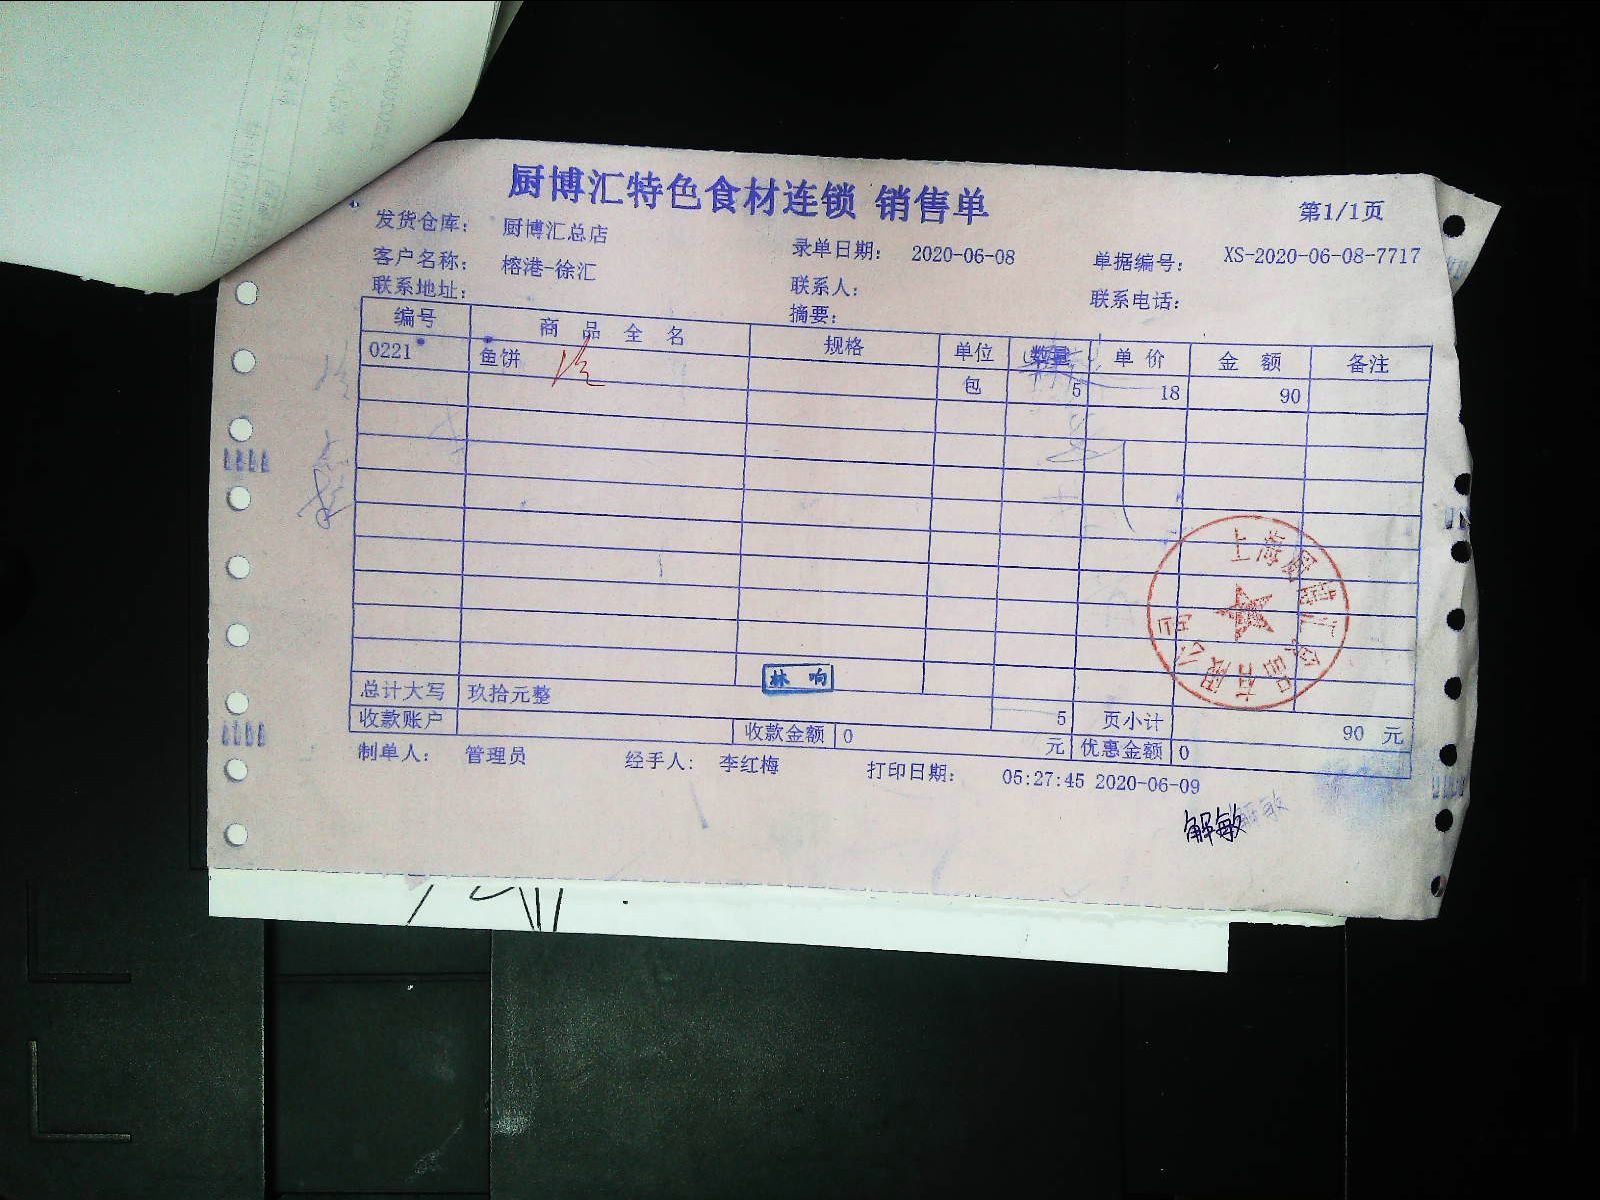 厨博汇特色食材连锁 销售单
第1/1页
发货仓库： 厨博汇总店 录单日期： 2020-06-08 单据编号： XS-2020-06-08-7717
客户名称： 榕港-徐汇 联系人： 联系电话：
联系地址： 摘要：
编号 商 品 全 名 规格 单位 数量 单 价 金 额 备注
0221 鱼饼 包 5 18 90
上海厨博汇食品有限公司
林 响
总计大写 玖拾元整 5 页小计 90 元
收款账户 收款金额 0 元 优惠金额 0
制单人： 管理员 经手人： 李红梅 打印日期： 05:27:45 2020-06-09
解敏